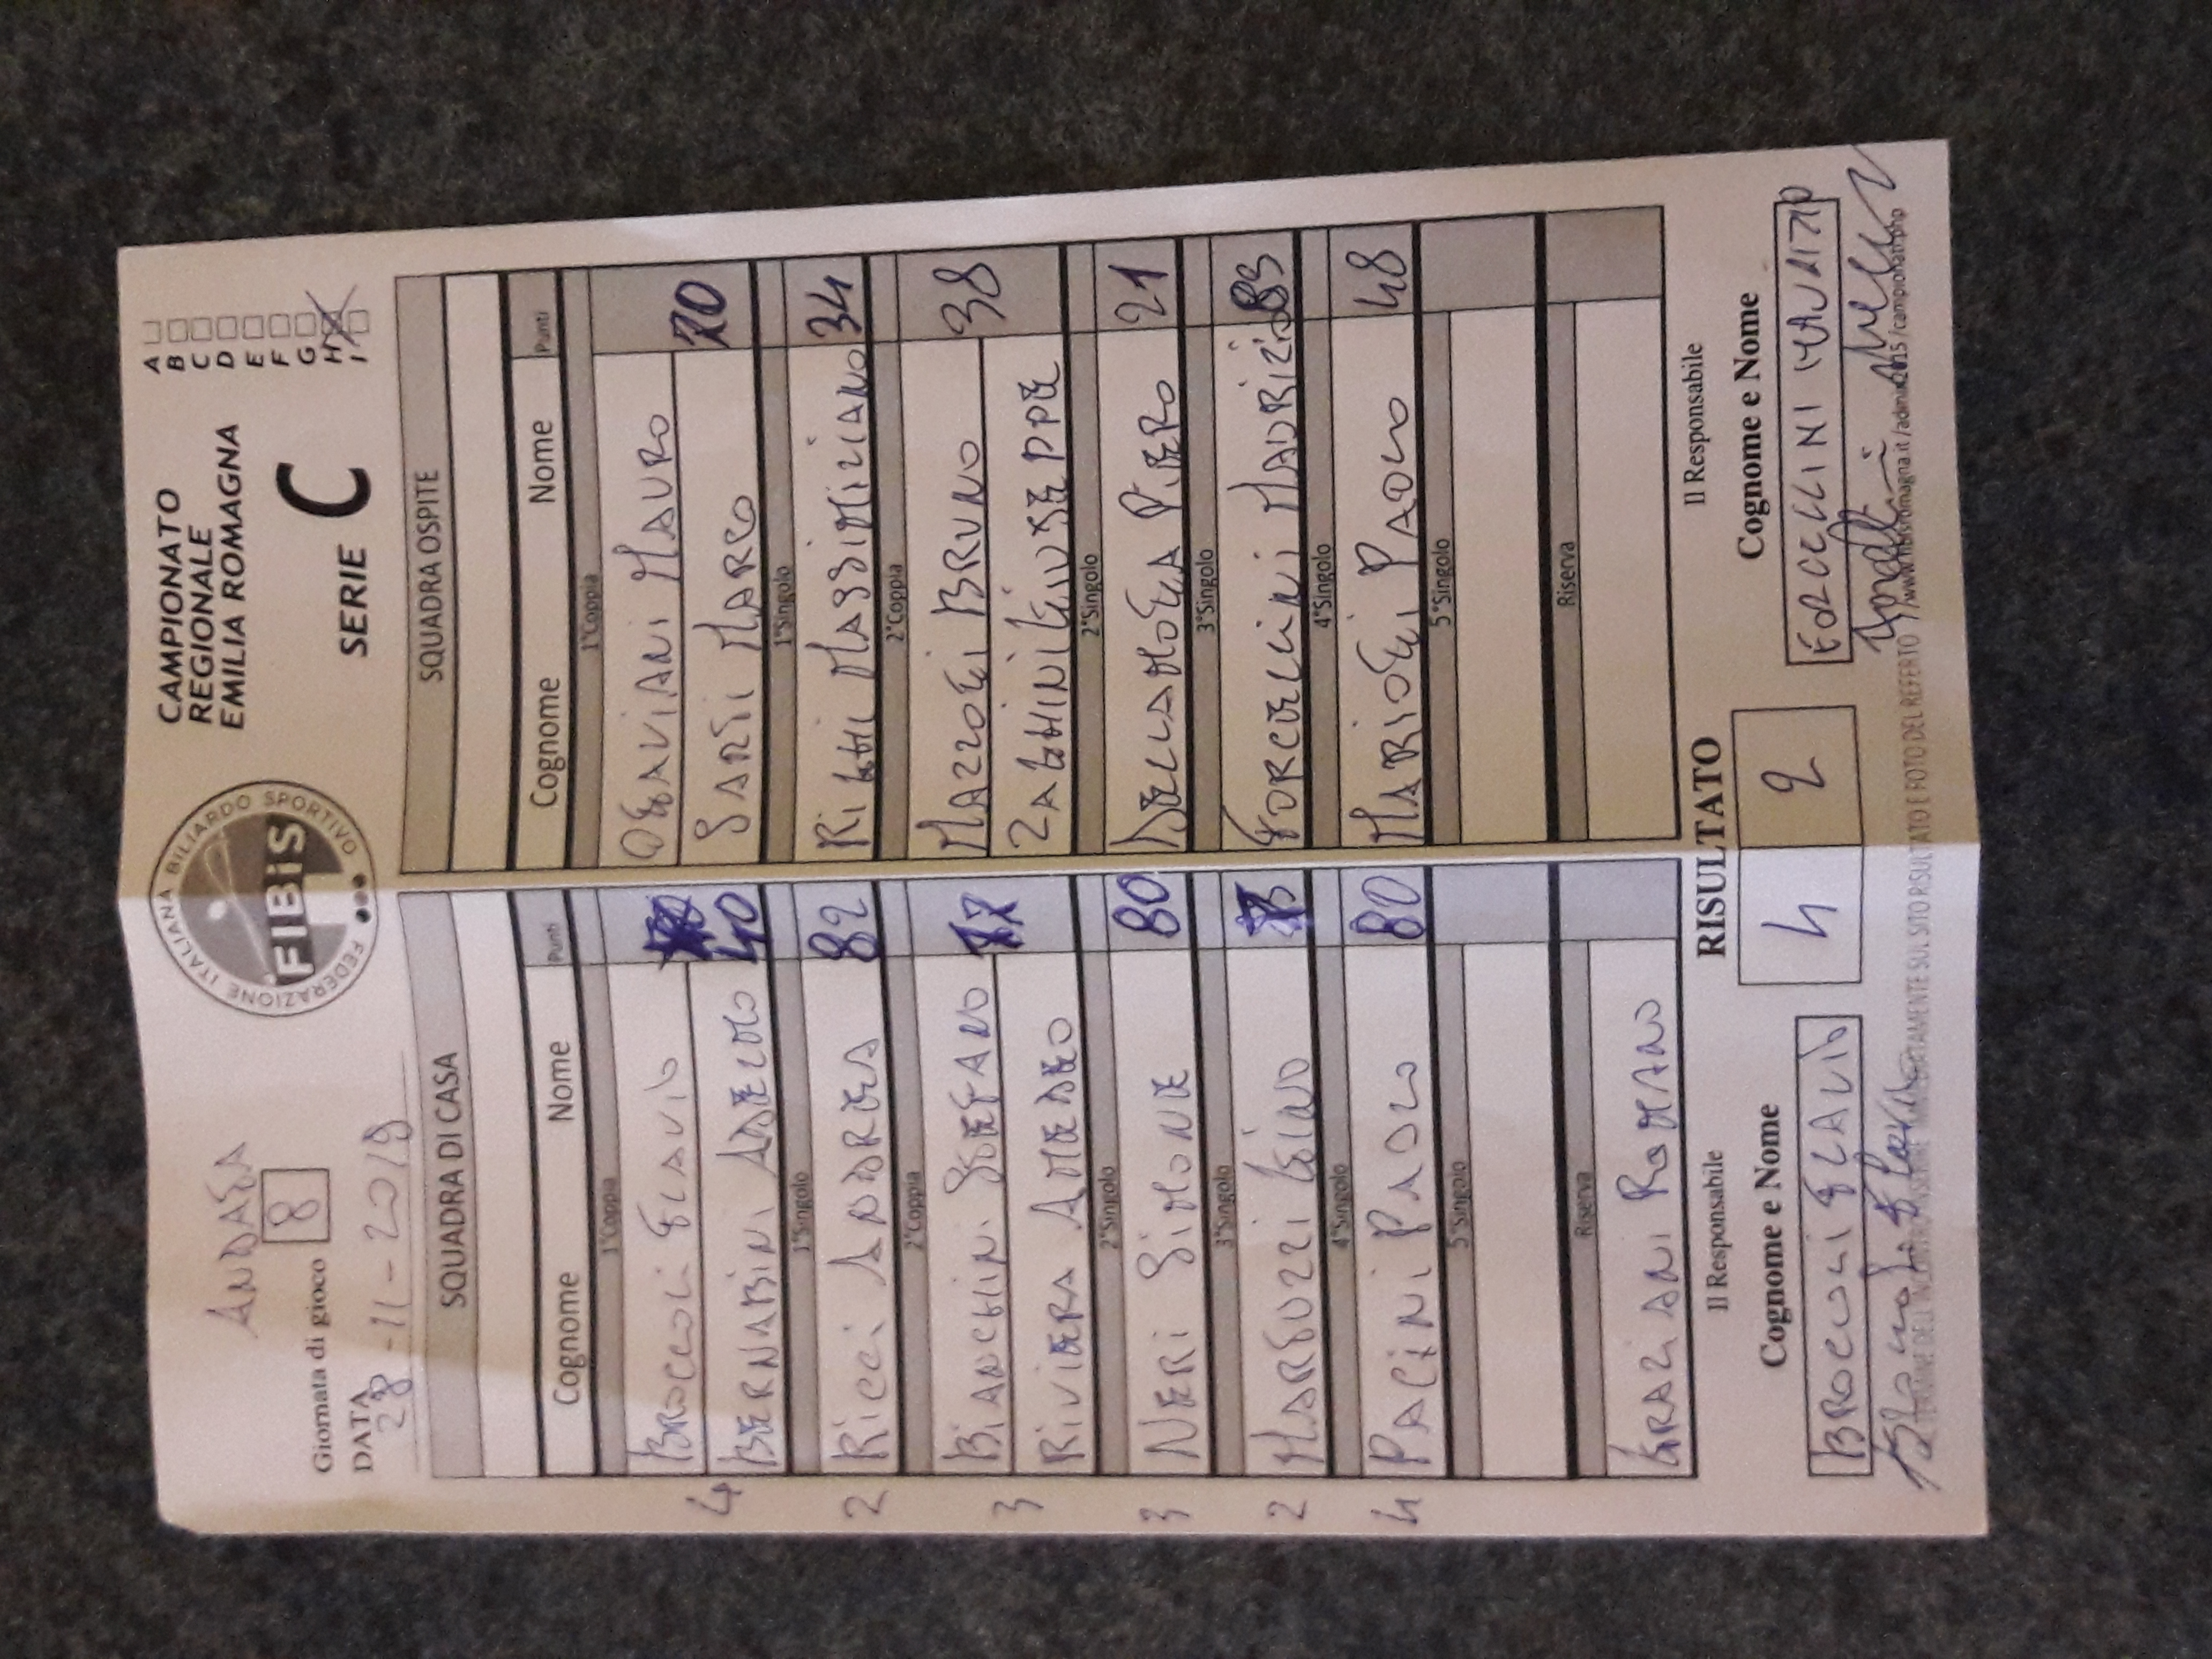 ANDATA
Giornata di gioco 8
DATA 28-11-2019
FEDERAZIONE ITALIANA BILIARDO SPORTIVO
FIBiS
CAMPIONATO
REGIONALE
EMILIA ROMAGNA
SERIE C
A
B
C
D
E
F
G
H
I
SQUADRA DI CASA SQUADRA OSPITE
Cognome Nome Punti Cognome Nome Punti
1°Coppia 1°Coppia
BROCCOLI FLAVIO OTTAVIANI MAURO 70
4 BERNABINI ADELMO 40 SARTI MARCO
1°Singolo 1°Singolo
2 RICCI ANDREA 82 RIGHI MASSIMILIANO 34
2°Coppia 2°Coppia
BIANCHINI STEFANO MAZZOTTI BRUNO 38
3 RIVIERA AMEDEO ZAGHINI GIUSEPPE
2°Singolo 2°Singolo
3 NERI SIMONE 80 DELLAMOTTA PIERO 21
3°Singolo 3°Singolo
2 MARFUZZI GINO FORCELLINI MAURIZIO 83
4°Singolo 4°Singolo
4 PACINI PAOLO 80 MARIOTTI PAOLO 48
5°Singolo 5°Singolo
Riserva Riserva
GRAZIANI ROMANO
Il Responsabile RISULTATO Il Responsabile
Cognome e Nome 4 2 Cognome e Nome
BROCCOLI FLAVIO FORCELLINI MAURIZIO